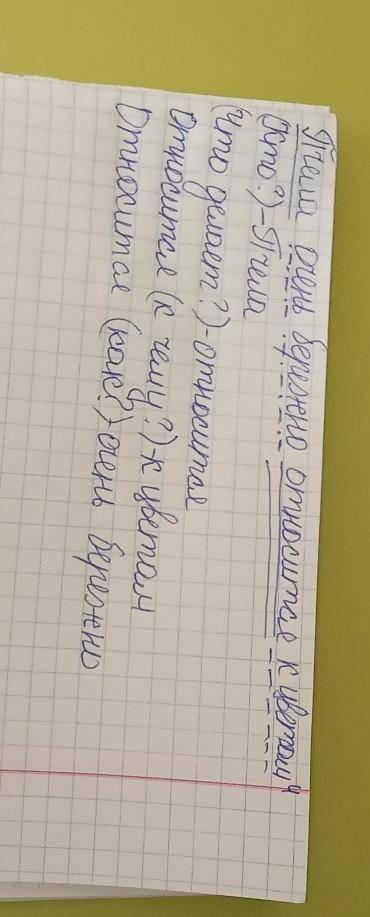 Пчела очень бережно относится к цветам
(кто?) - Пчела
(что делает?) - относится
Относится (к чему?) - к цветам
Относится (как?) - очень бережно